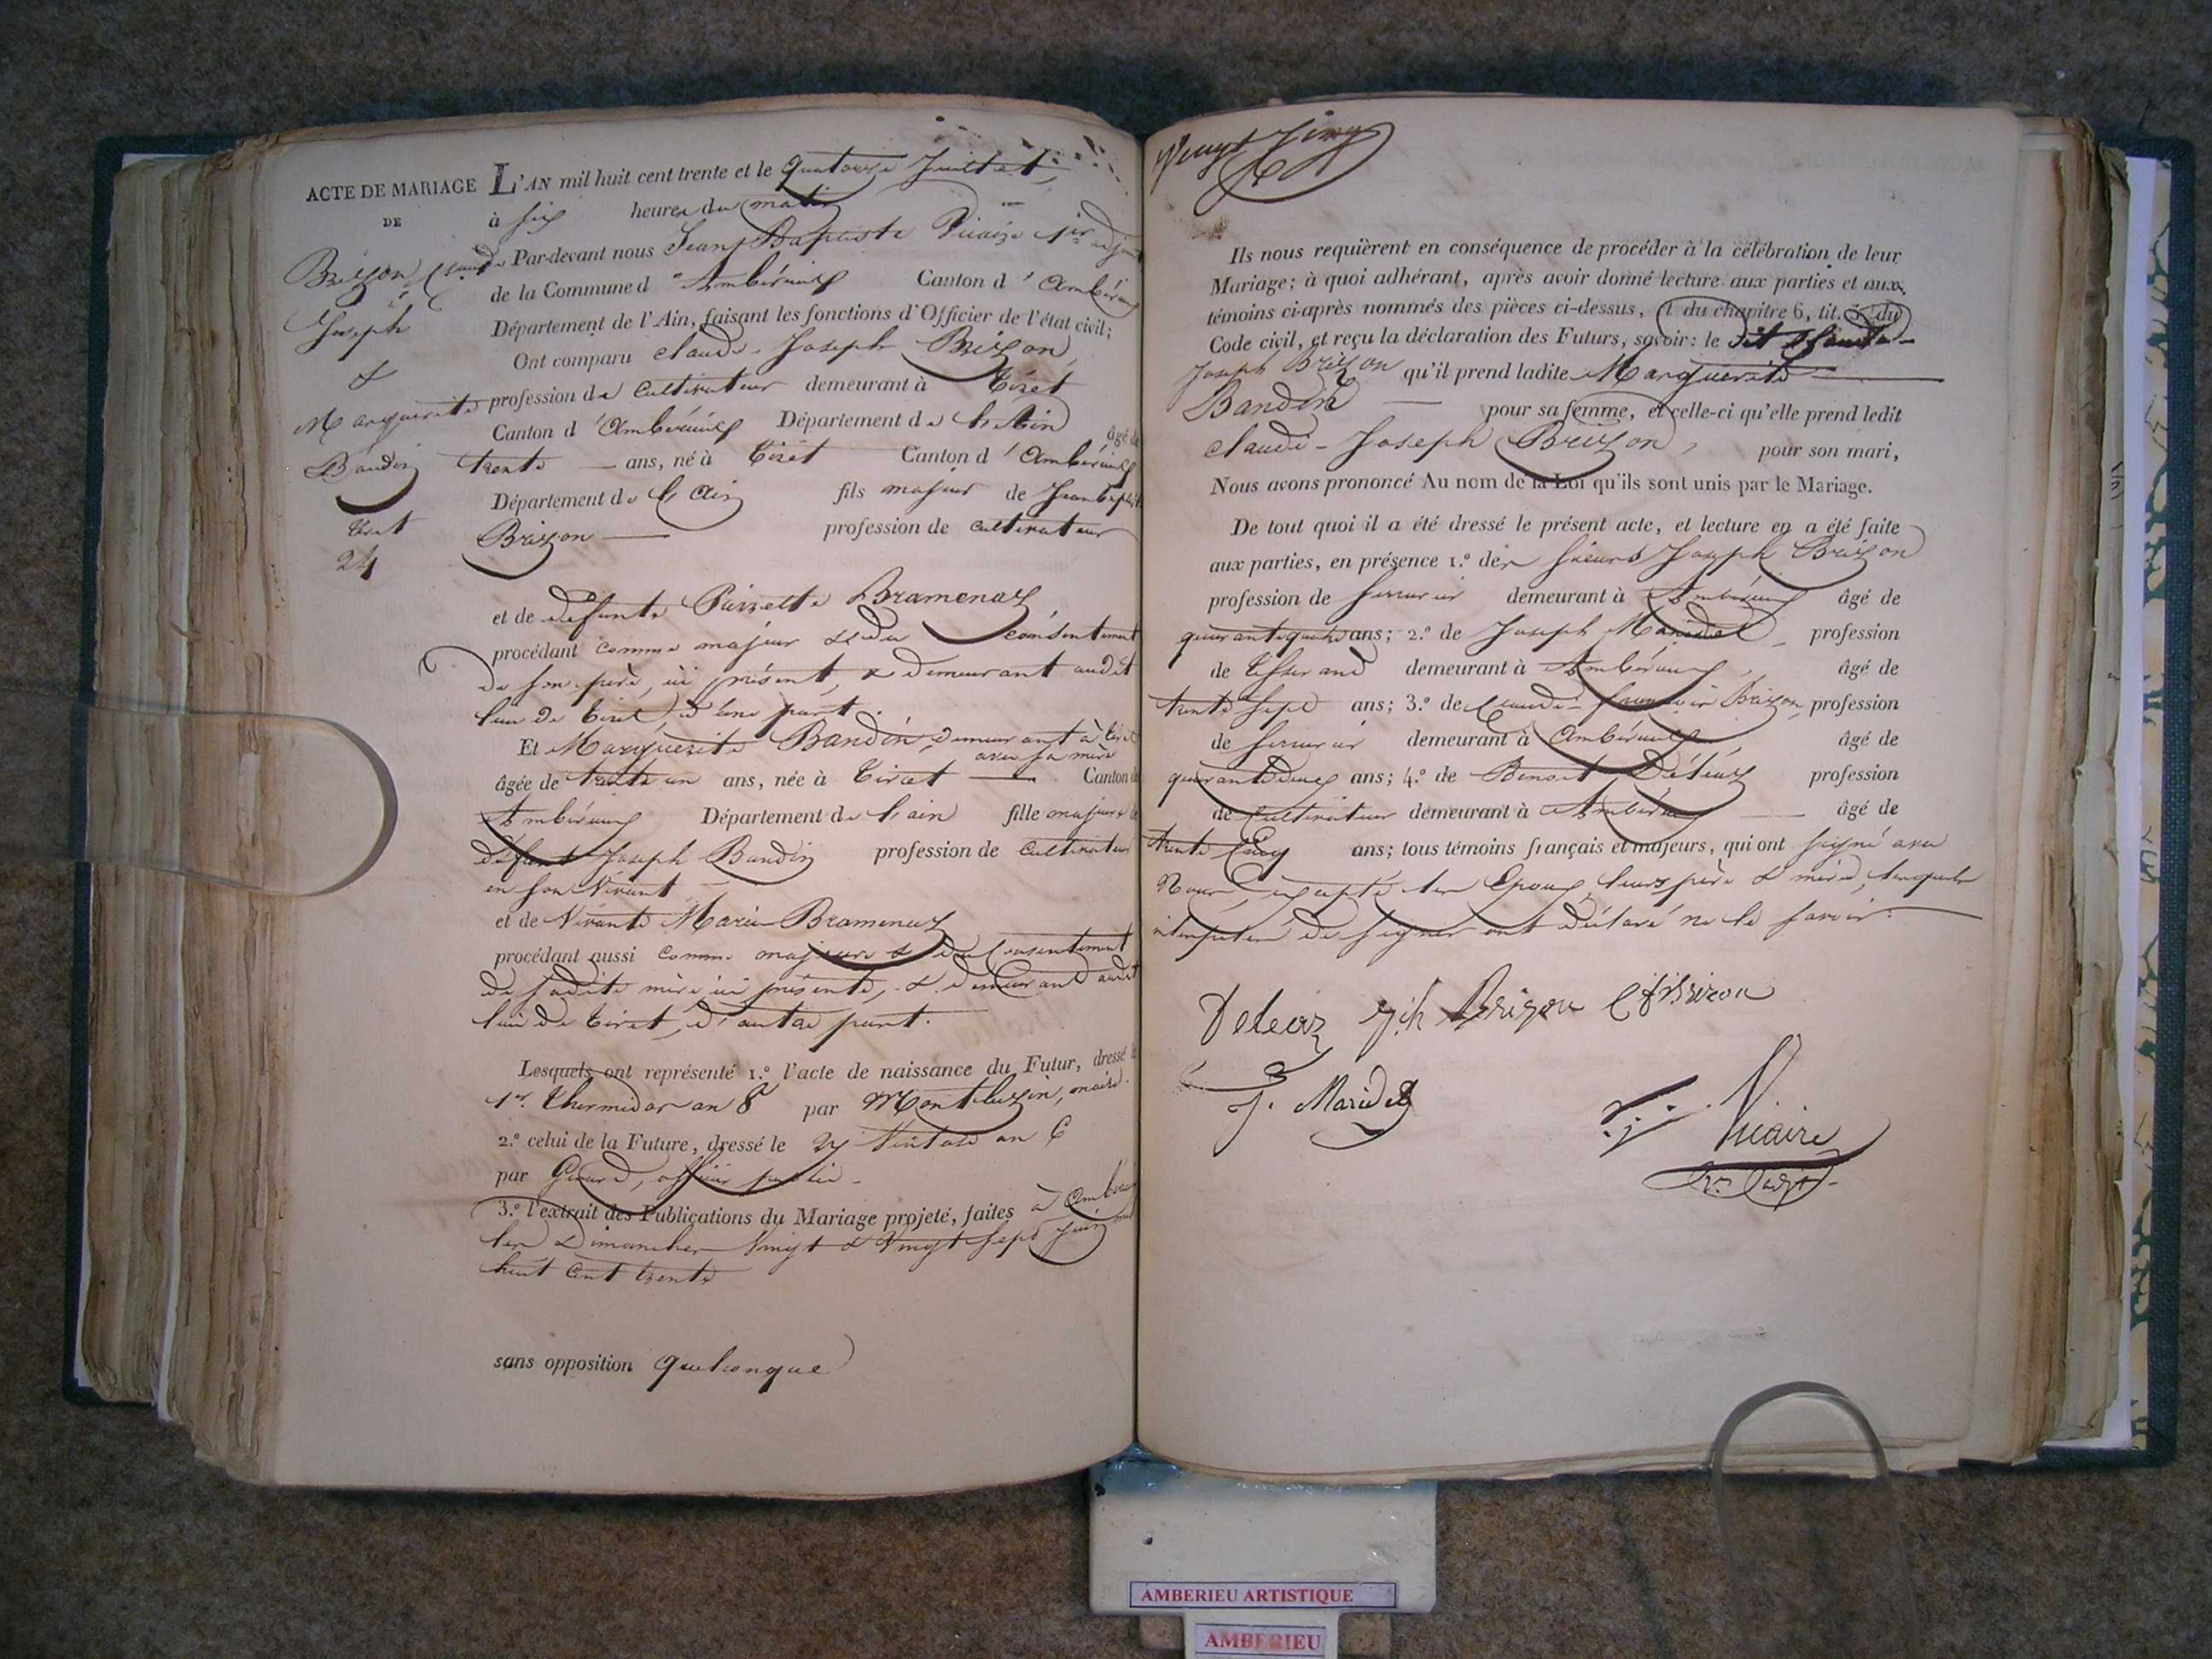 ACTE DE MARIAGE
DE
Brizon Claude
Joseph
&
Marguerite
Baudin
Tiret
24
L'AN mil huit cent trente et le quatorze Juillet,
à six heures du matin
Par-devant nous Jean Baptiste Vicaire 1er adjoint
de la Commune d'Ambérieux Canton d'Ambérieux
Département de l'Ain, faisant les fonctions d'Officier de l'état civil;
Ont comparu Claude-Joseph Brizon,
profession de Cultivateur demeurant à Tiret
Canton d'Ambérieux Département de l'Ain âgé de
trente ans, né à Tiret Canton d'Ambérieux
Département de l'Ain fils majeur de Jean Baptiste
Brizon profession de cultivateur
et de défunte Pierrette Bramenaz
procédant comme majeur & du consentement
de son père, ici présent, & demeurant audit
lieu de Tiret, d'une part.
Et Marguerite Baudin, demeurant à Tiret
avec sa mère
âgée de trente un ans, née à Tiret Canton d
Ambérieux Département de l'ain fille majeure de
défunt Joseph Baudin profession de Cultivateur
en son Vivant
et de Vivante Marie Bramenaz
procédant aussi comme majeure & du Consentement
de sadite mère ici présente, & demeurant audit
lieu de Tiret, d'autre part.
Lesquels ont représenté 1.º l'acte de naissance du Futur, dressé le
1er Thermidor an 8 par Montluzin, maire.
2.º celui de la Future, dressé le 27 Ventose an 6
par officier public
3.º l'extrait des Publications du Mariage projeté, faites à Ambérieux
les Dimanches Vingt & Vingt sept Juin mil
huit Cent trente
sans opposition quelconque
Vingt Cinq
Ils nous requièrent en conséquence de procéder à la célébration de leur
Mariage; à quoi adhérant, après avoir donné lecture aux parties et aux
témoins ci-après nommés des pièces ci-dessus, et du chapitre 6, tit. 5 du
Code civil, et reçu la déclaration des Futurs, savoir: le dit Claude-
Joseph Brizon qu'il prend ladite Marguerite
Baudin pour sa femme, et celle-ci qu'elle prend ledit
Claude-Joseph Brizon, pour son mari,
Nous avons prononcé Au nom de la Loi qu'ils sont unis par le Mariage.
De tout quoi il a été dressé le présent acte, et lecture en a été faite
aux parties, en présence 1.º des sieurs Joseph Brizon
profession de serrurier demeurant à Ambérieux âgé de
quarante quatre ans; 2.º de Joseph Maridet profession
de tisserand demeurant à Ambérieux, âgé de
trente sept ans; 3.º de Claude-françois Brizon, profession
de serrurier demeurant à Ambérieux, âgé de
quarante deux ans; 4.º de Benoit Déléaz profession
de Cultivateur demeurant à Ambérieux âgé de
trente Cinq ans; tous témoins français et majeurs, qui ont signé avec
Nous, excepté les Epoux, leurs père & mère, lesquels
interpellés de signer ont déclaré ne le savoir.
Deleaz Jph Brizon C f Brizon
J. Maridet
Vicaire
1er adjt